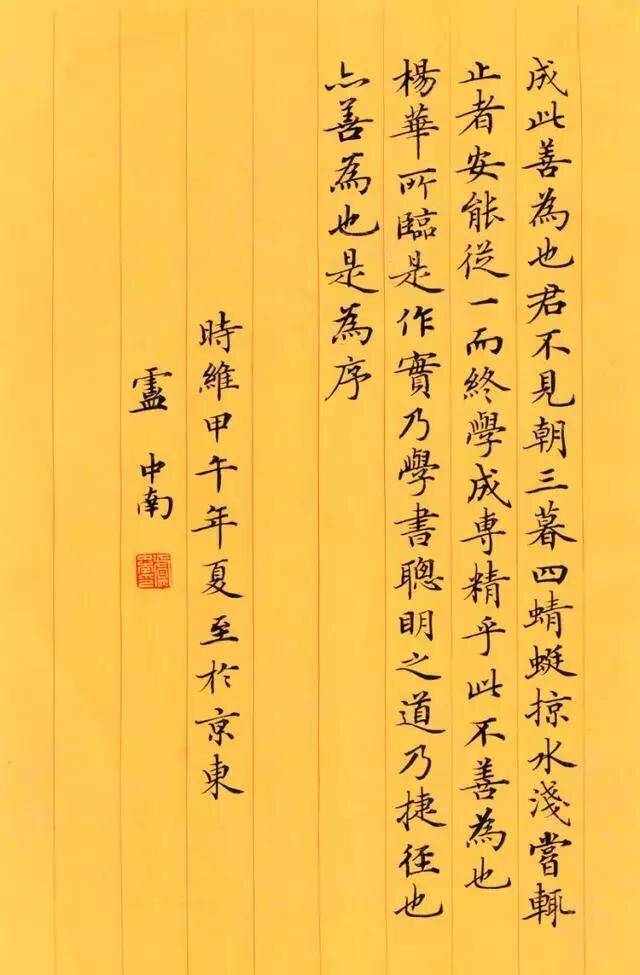 成此善為也君不見朝三暮四蜻蜓掠水淺嘗輒
止者安能從一而終學成專精乎此不善為也
楊華所臨是作實乃學書聰明之道乃捷徑也
亦善為也是為序
時維甲午年夏至於京東
盧中南